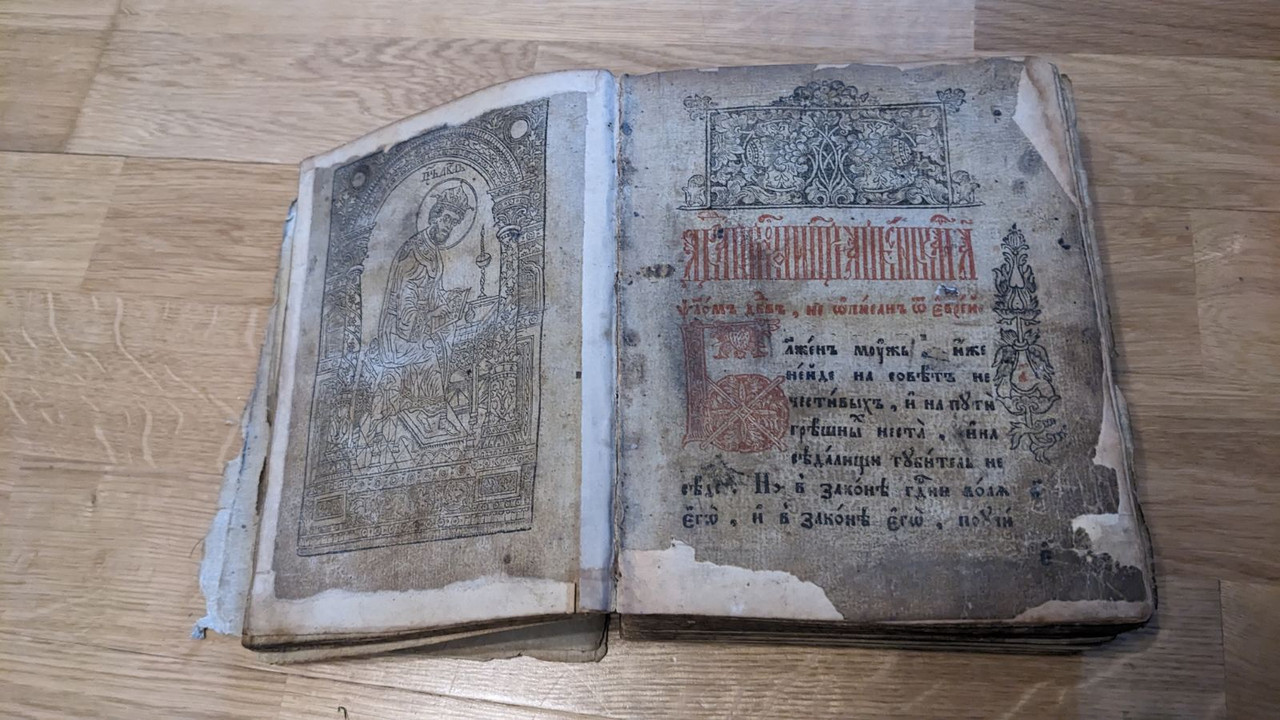 прⷪ҇ркъ дв҃дъ
ѱало́мъ дв҃дъ, не ѡ҆пи́санъ ѿ є҆вре́й
Бл҃же́нъ моу́жъ, и҆́же
не́йде на совѣ́тъ не
чести́выхъ, и҆ на пути̑
грѣ́шныⷯ нестѐ, и҆ на
сѣда́лищи губи́тель не
сѣ́де. Нъ в зако́нѣ гдⷭ҇ни во́лѧ
є҆гѡ̀, и҆ в зако́нѣ є҆гѡ̀, поучи́